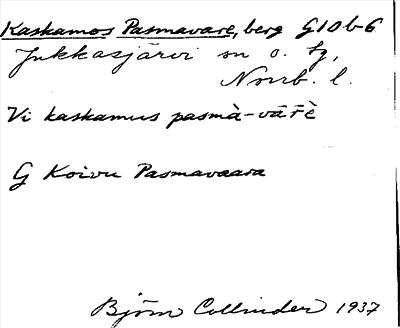 Kaskamos Pasmavare, berg G10b-6
Jukkasjärvi sn o. tg,
Norrb. l.
Vi kaskamus pasmà-vāř̄è
G Koivu Pasmavaara
Björn Collinder 1937